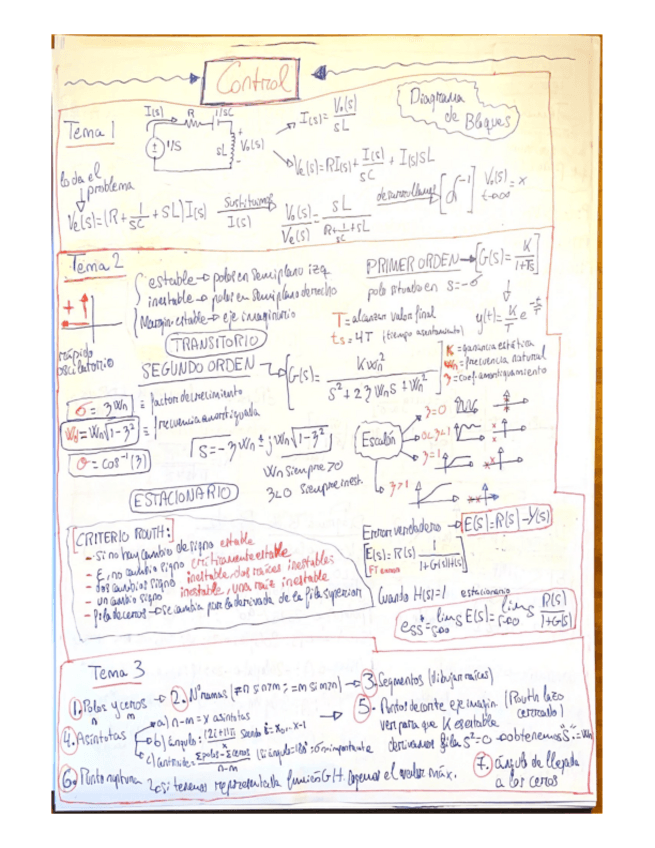 Control
Tema 1
I(s) R 1/sC
1/s
sL
+
Vo(s)
-
I(s) = Vo(s)/sL
Ve(s) = RI(s) + I(s)/sC + I(s)sL
Diagrama
de Bloques
problema
Ve(s) = (R + 1/sC + sL) I(s)
sustituimos
I(s)
Vo(s)/Ve(s) = sL/(R + 1/sC + sL)
desarrollamos
t→∞
Tema 2
estable → polos en semiplano izq
inestable → polos en semiplano derecho
Margin. estable → eje imaginario
rápido
oscilatorio
PRIMER ORDEN → [G(s) = K/(1+Ts)]
polo situado en s = -σ
T = alcanzar valor final
ts = 4T (tiempo asentamiento)
y(t) = K/T e^(-t/T)
TRANSITORIO
SEGUNDO ORDEN → G(s) = Kwn²/(s² + 2ζwns + wn²)
K = ganancia estática
wn = frecuencia natural
ζ = coef. amortiguamiento
σ = ζwn ≡ factor decrecimiento
wd = wn√(1-ζ²) ≡ frecuencia amortiguada
θ = cos⁻¹(ζ)
s = -ζwn ± jwn√(1-ζ²)
wn siempre >0
ζ<0 siempre inest.
Escalón
ζ=0
0<ζ<1
ζ=1
ζ>1
ESTACIONARIO
CRITERIO ROUTH:
- Si no hay cambio de signo estable
- ε, no cambia signo críticamente estable
- dos cambios signo inestable, dos raíces inestables
- un cambio signo inestable, una raíz inestable
- fila de ceros → se cambia por la derivada de la fila superior
Error verdadero → E(s) = R(s) - Y(s)
E(s) = R(s) 1/(1+G(s)H(s))
FT error
Cuando H(s)=1 estacionario
ess = lim s→0 s E(s) = lim s→0 s R(s)/(1+G(s))
Tema 3
1. Polos y ceros → 2. Nº ramas (= n si n>m ; = m si m>n) → 3. Segmentos (dibujar raíces)
n m
4. Asíntotas
a) n-m = x asíntotas
b) ángulo: (2i+1)π siendo i = 0,..x-1
c) centroide = Σpolos - Σceros / n-m
5. Puntos de corte eje imagin (Routh lazo
cerrado)
ver para que K estable
derivamos fila s² = 0 → obtenemos
6. Punto ruptura
si tenemos representada función GH. cogemos el valor máx.
7. ángulo de llegada
a los ceros